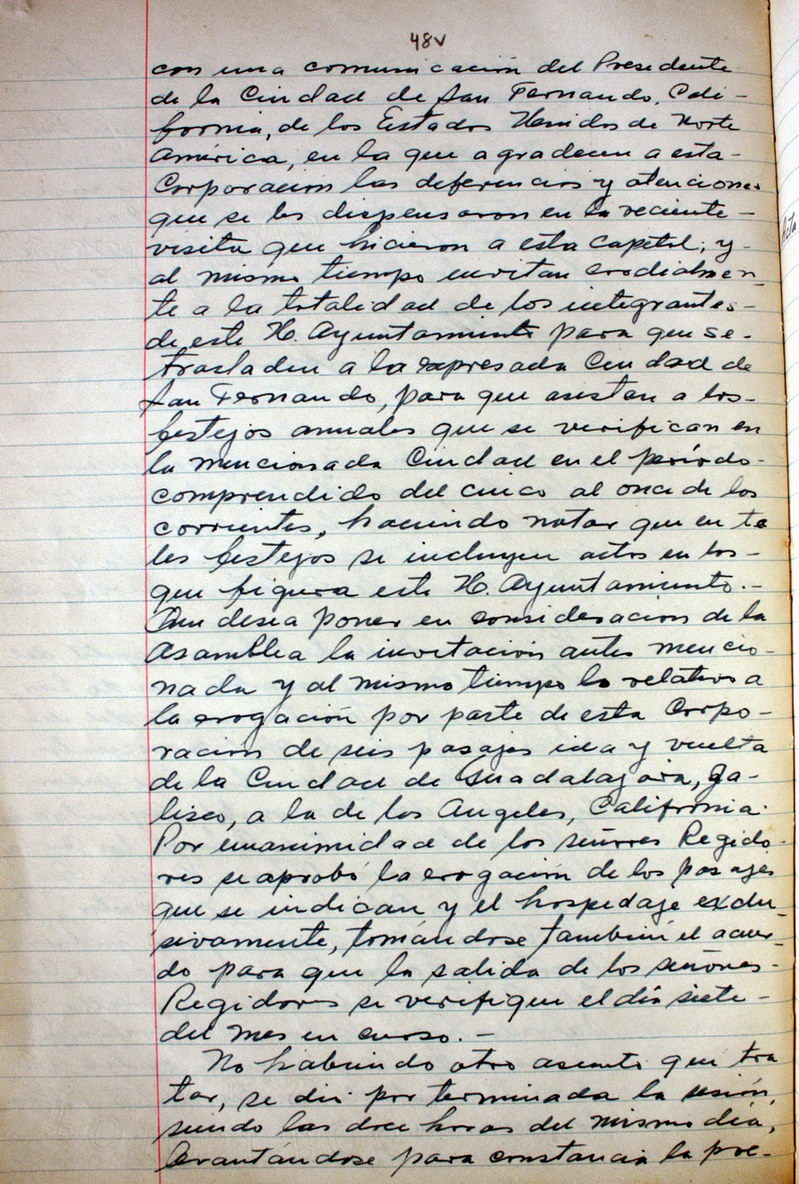 48v
con una comunicación del Presidente
de la Ciudad de San Fernando, Cali-
fornia, de los Estados Unidos de Norte
América, en la que agradecen a esta-
Corporación las deferencias y atenciones
que se les dispensaron en la reciente-
visita que hicieron a esta capital; y-
al mismo tiempo invitan cordialmen-
te a la totalidad de los integrantes-
de este H. Ayuntamiento para que se-
trasladen a la expresada Ciudad de
San Fernando, para que asistan a los-
festejos anuales que se verifican en
la mencionada Ciudad en el período-
comprendido del cinco al once de los
corrientes, haciendo notar que en ta
les festejos se incluyen actos en los-
que figura este H. Ayuntamiento.-
Que desea poner en consideracion de la
Asamblea la invitación antes mencio-
nada y al mismo tiempo lo relativo a
la erogación por parte de esta Corpo-
ración de seis pasajes ida y vuelta
de la Ciudad de Guadalajara, Ja-
lisco, a la de los Angeles, California.
Por unanimidad de los señores Regido-
res se aprobó la erogación de los pasajes
que se indican y el hospedaje exclu-
sivamente, tomándose también el acuer-
do para que la salida de los señores-
Regidores se verifique el día siete-
del mes en curso.-
No habiendo otro asunto que tra
tar, se dió por terminada la sesión,
siendo las doce horas del mismo día,
levantándose para constancia la pre-
Acta